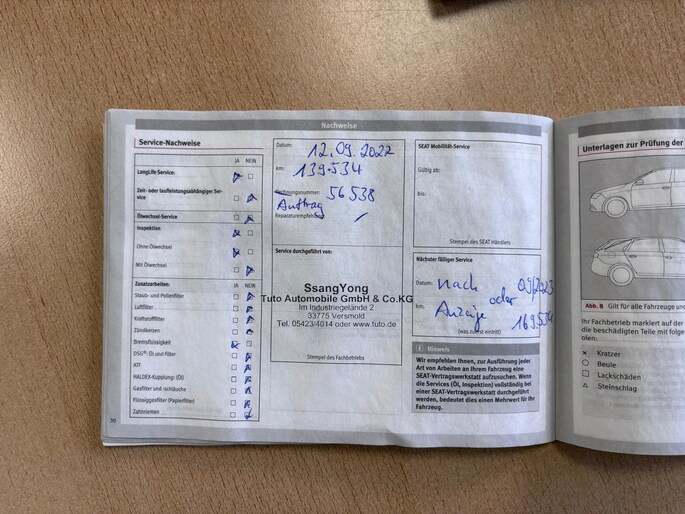 Nachweise
Service-Nachweise
JA NEIN
LongLife Service:
Zeit- oder laufleistungsabhängiger Ser-
vice
Ölwechsel-Service
Inspektion
Ohne Ölwechsel
Mit Ölwechsel
Zusatzarbeiten:
Staub- und Pollenfilter
Luftfilter
Kraftstofffilter
Zündkerzen
Bremsflüssigkeit
DSG®: Öl und Filter
ATF
HALDEX-Kupplung: (Öl)
Gasfilter und -schläuche
Flüssiggasfilter (Papierfilter)
Zahnriemen
30
Datum: 12.09.2022
km: 139.534
Rechnungsnummer: 56538
Auftrag
Reparaturempfehlung
Service durchgeführt von:
SsangYong
Tuto Automobile GmbH & Co.KG
Im Industriegelände 2
33775 Versmold
Tel. 05423/4014 oder www.tuto.de
Stempel des Fachbetriebs
SEAT Mobilität-Service
Gültig ab:
Bis:
Stempel des SEAT Händlers
Nächster fälliger Service
Datum: nach oder 09/2023
km: Anzeige 169.534
(was zuerst eintritt)
i Hinweis
Wir empfehlen Ihnen, zur Ausführung jeder
Art von Arbeiten an Ihrem Fahrzeug eine
SEAT-Vertragswerkstatt aufzusuchen. Wenn
die Services (Öl, Inspektion) vollständig bei
einer SEAT-Vertragswerkstatt durchgeführt
werden, bedeutet dies einen Mehrwert für Ihr
Fahrzeug.
Unterlagen zur Prüfung der
Abb. 8 Gilt für alle Fahrzeuge und
Ihr Fachbetrieb markiert auf der
die beschädigten Teile mit folge
olen:
Kratzer
Beule
Lackschäden
Steinschlag